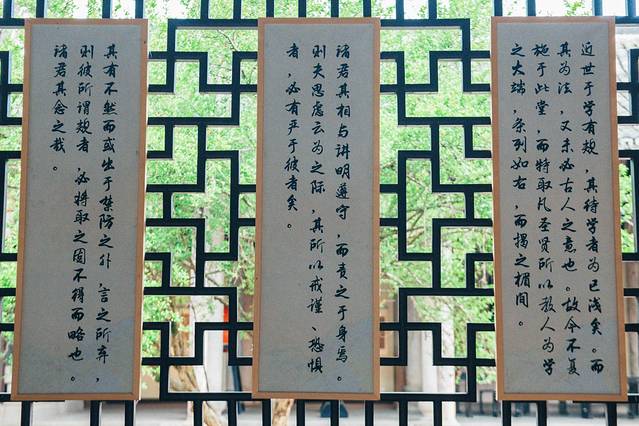 近世于学有规，其待学者为已浅矣。而
其为法，又未必古人之意也。故今不复
施于此堂，而特取凡圣贤所以教人为学
之大端，条列如右，而揭之楣间。
诸君其相与讲明遵守，而责之于身焉。
则夫思虑云为之际，其所以戒谨、恐惧
者，必有严于彼者矣。
其有不然而或出于禁防之外，言之所弃，
则彼所谓规者，必将取之固不得而略也。
诸君其念之哉。